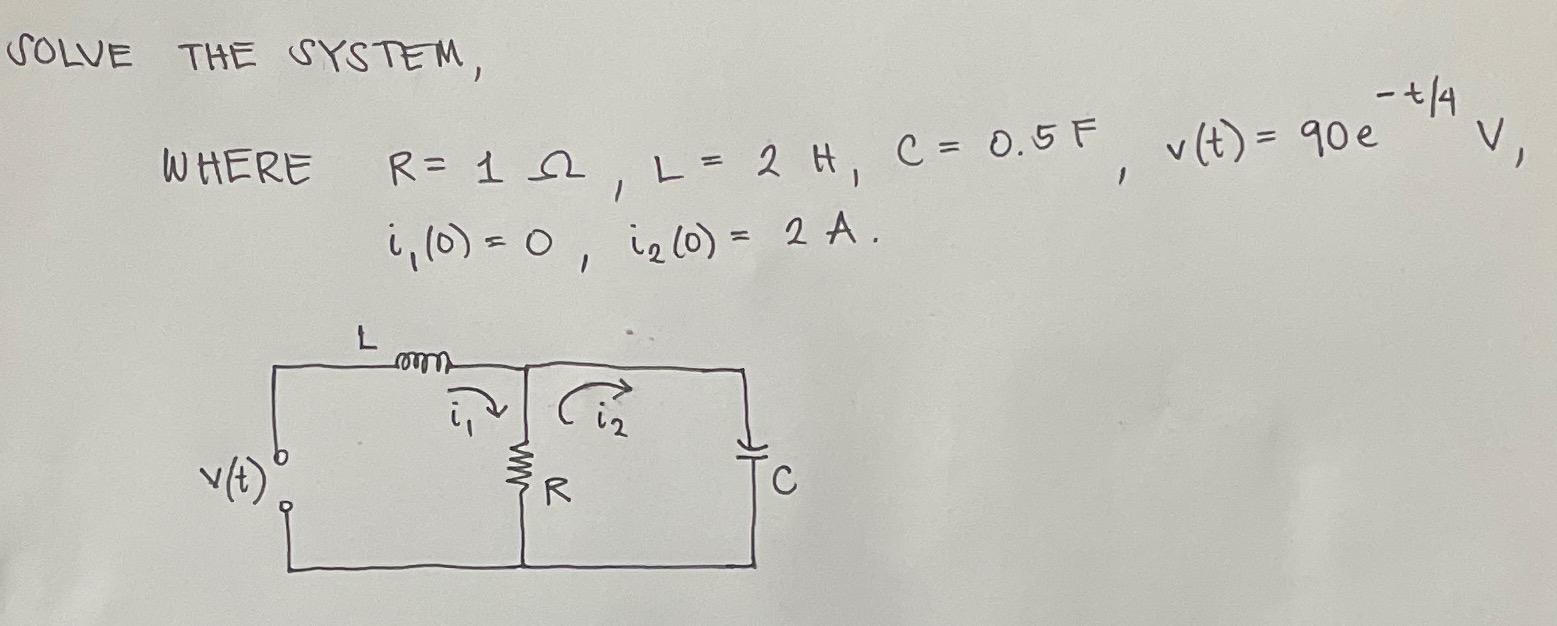 SOLVE THE SYSTEM,
WHERE R = 1 Ω, L = 2 H, C = 0.5 F, v(t) = 90e^{-t/4} V,
i₁(0) = 0, i₂(0) = 2 A.
L
i₁ i₂
v(t) R C